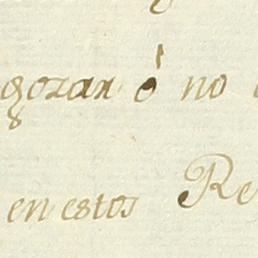 gozan ó no
en estos Re